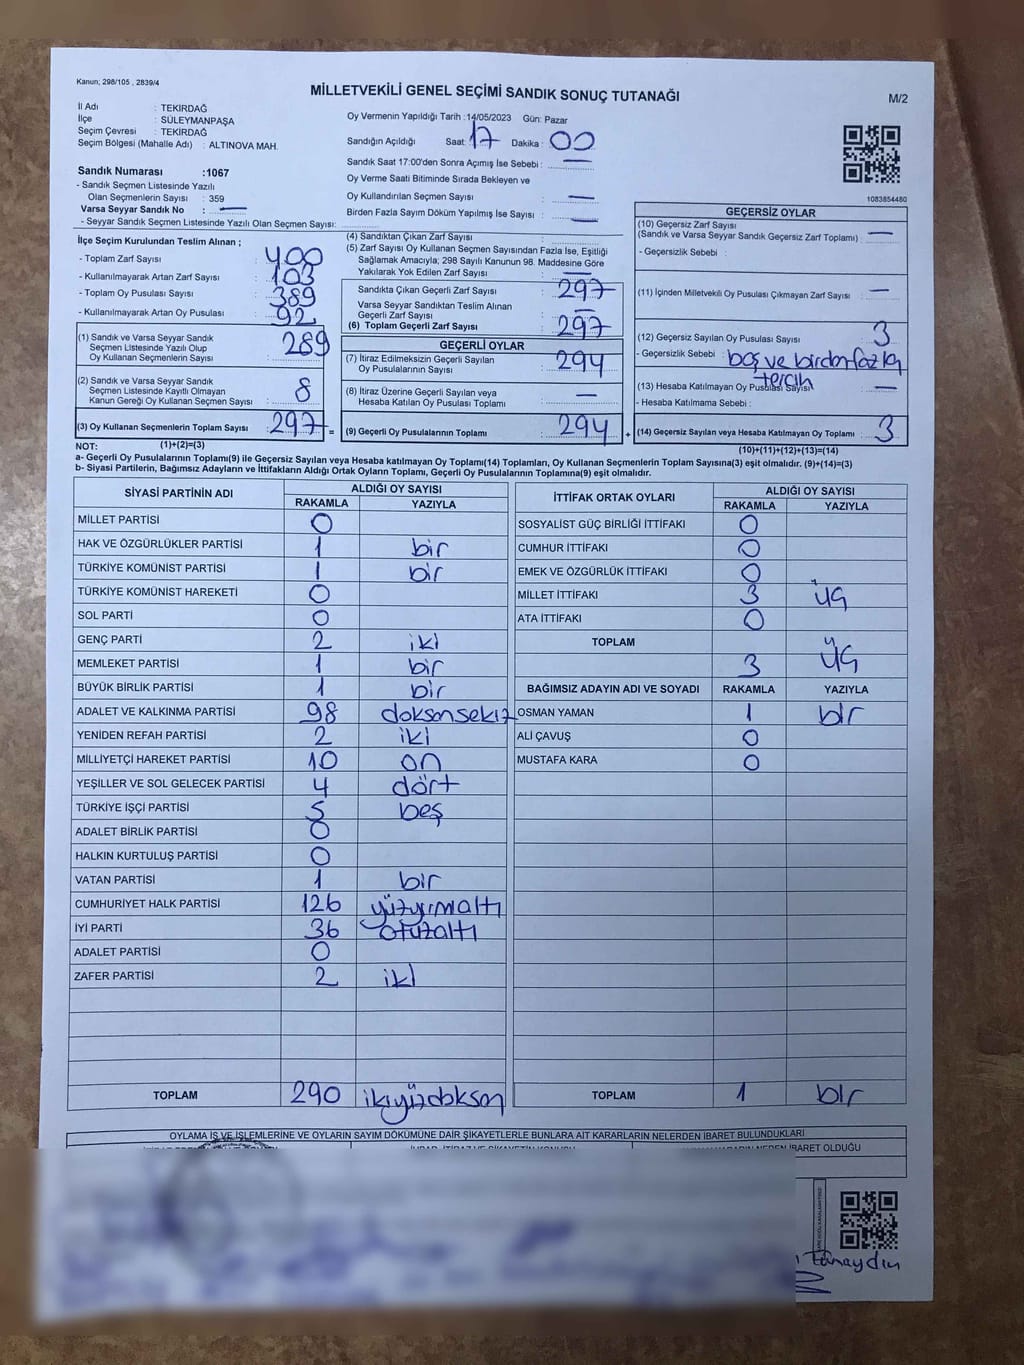 Kanun; 298/105 , 2839/4
MİLLETVEKİLİ GENEL SEÇİMİ SANDIK SONUÇ TUTANAĞI
M/2
İl Adı : TEKİRDAĞ
İlçe : SÜLEYMANPAŞA
Seçim Çevresi : TEKİRDAĞ
Seçim Bölgesi (Mahalle Adı) : ALTINOVA MAH.
Sandık Numarası :1067
- Sandık Seçmen Listesinde Yazılı
Olan Seçmenlerin Sayısı : 359
Varsa Seyyar Sandık No : —
- Seyyar Sandık Seçmen Listesinde Yazılı Olan Seçmen Sayısı:
Oy Vermenin Yapıldığı Tarih :14/05/2023 Gün: Pazar
Sandığın Açıldığı Saat: 17 Dakika : 00
Sandık Saat 17:00'den Sonra Açımış İse Sebebi : —
Oy Verme Saati Bitiminde Sırada Bekleyen ve
Oy Kullandırılan Seçmen Sayısı : —
Birden Fazla Sayım Döküm Yapılmış İse Sayısı : —
1083854480
İlçe Seçim Kurulundan Teslim Alınan ;
- Toplam Zarf Sayısı : 400
- Kullanılmayarak Artan Zarf Sayısı : 103
- Toplam Oy Pusulası Sayısı : 389
- Kullanılmayarak Artan Oy Pusulası : 92
(1) Sandık ve Varsa Seyyar Sandık
Seçmen Listesinde Yazılı Olup
Oy Kullanan Seçmenlerin Sayısı : 289
(2) Sandık ve Varsa Seyyar Sandık
Seçmen Listesinde Kayıtlı Olmayan
Kanun Gereği Oy Kullanan Seçmen Sayısı : 8
(3) Oy Kullanan Seçmenlerin Toplam Sayısı : 297 =
(4) Sandıktan Çıkan Zarf Sayısı :
(5) Zarf Sayısı Oy Kullanan Seçmen Sayısından Fazla İse, Eşitliği
Sağlamak Amacıyla; 298 Sayılı Kanunun 98. Maddesine Göre
Yakılarak Yok Edilen Zarf Sayısı : —
Sandıkta Çıkan Geçerli Zarf Sayısı : 297
Varsa Seyyar Sandıktan Teslim Alınan
Geçerli Zarf Sayısı : —
(6) Toplam Geçerli Zarf Sayısı : 297
GEÇERLİ OYLAR
(7) İtiraz Edilmeksizin Geçerli Sayılan
Oy Pusulalarının Sayısı : 294
(8) İtiraz Üzerine Geçerli Sayılan veya
Hesaba Katılan Oy Pusulası Toplamı : —
(9) Geçerli Oy Pusulalarının Toplamı : 294 +
GEÇERSİZ OYLAR
(10) Geçersiz Zarf Sayısı
(Sandık ve Varsa Seyyar Sandık Geçersiz Zarf Toplamı) : —
- Geçersizlik Sebebi :
(11) İçinden Milletvekili Oy Pusulası Çıkmayan Zarf Sayısı : —
(12) Geçersiz Sayılan Oy Pusulası Sayısı : 3
- Geçersizlik Sebebi : boş ve birden fazla
tercih
(13) Hesaba Katılmayan Oy Pusulası Sayısı : —
- Hesaba Katılmama Sebebi :
(14) Geçersiz Sayılan veya Hesaba Katılmayan Oy Toplamı : 3
NOT: (1)+(2)=(3)
(10)+(11)+(12)+(13)=(14)
a- Geçerli Oy Pusulalarının Toplamı(9) ile Geçersiz Sayılan veya Hesaba katılmayan Oy Toplamı(14) Toplamları, Oy Kullanan Seçmenlerin Toplam Sayısına(3) eşit olmalıdır. (9)+(14)=(3)
b- Siyasi Partilerin, Bağımsız Adayların ve İttifakların Aldığı Ortak Oyların Toplamı, Geçerli Oy Pusulalarının Toplamına(9) eşit olmalıdır.
SİYASİ PARTİNİN ADI ALDIĞI OY SAYISI
RAKAMLA YAZIYLA
MİLLET PARTİSİ 0
HAK VE ÖZGÜRLÜKLER PARTİSİ 1 bir
TÜRKİYE KOMÜNİST PARTİSİ 1 bir
TÜRKİYE KOMÜNİST HAREKETİ 0
SOL PARTİ 0
GENÇ PARTİ 2 iki
MEMLEKET PARTİSİ 1 bir
BÜYÜK BİRLİK PARTİSİ 1 bir
ADALET VE KALKINMA PARTİSİ 98 doksansekiz
YENİDEN REFAH PARTİSİ 2 iki
MİLLİYETÇİ HAREKET PARTİSİ 10 on
YEŞİLLER VE SOL GELECEK PARTİSİ 4 dört
TÜRKİYE İŞÇİ PARTİSİ 5 beş
ADALET BİRLİK PARTİSİ 0
HALKIN KURTULUŞ PARTİSİ 0
VATAN PARTİSİ 1 bir
CUMHURİYET HALK PARTİSİ 126 yüzyirmialtı
İYİ PARTİ 36 otuzaltı
ADALET PARTİSİ 0
ZAFER PARTİSİ 2 iki
TOPLAM 290 ikiyüzdoksan
İTTİFAK ORTAK OYLARI ALDIĞI OY SAYISI
RAKAMLA YAZIYLA
SOSYALİST GÜÇ BİRLİĞİ İTTİFAKI 0
CUMHUR İTTİFAKI 0
EMEK VE ÖZGÜRLÜK İTTİFAKI 0
MİLLET İTTİFAKI 3 üç
ATA İTTİFAKI 0
TOPLAM 3 üç
BAĞIMSIZ ADAYIN ADI VE SOYADI RAKAMLA YAZIYLA
OSMAN YAMAN 1 bir
ALİ ÇAVUŞ 0
MUSTAFA KARA 0
TOPLAM 1 bir
OYLAMA İŞ VE İŞLEMLERİNE VE OYLARIN SAYIM DÖKÜMÜNE DAİR ŞİKAYETLERLE BUNLARA AİT KARARLARIN NELERDEN İBARET BULUNDUKLARI
NEDEN İBARET OLDUĞU